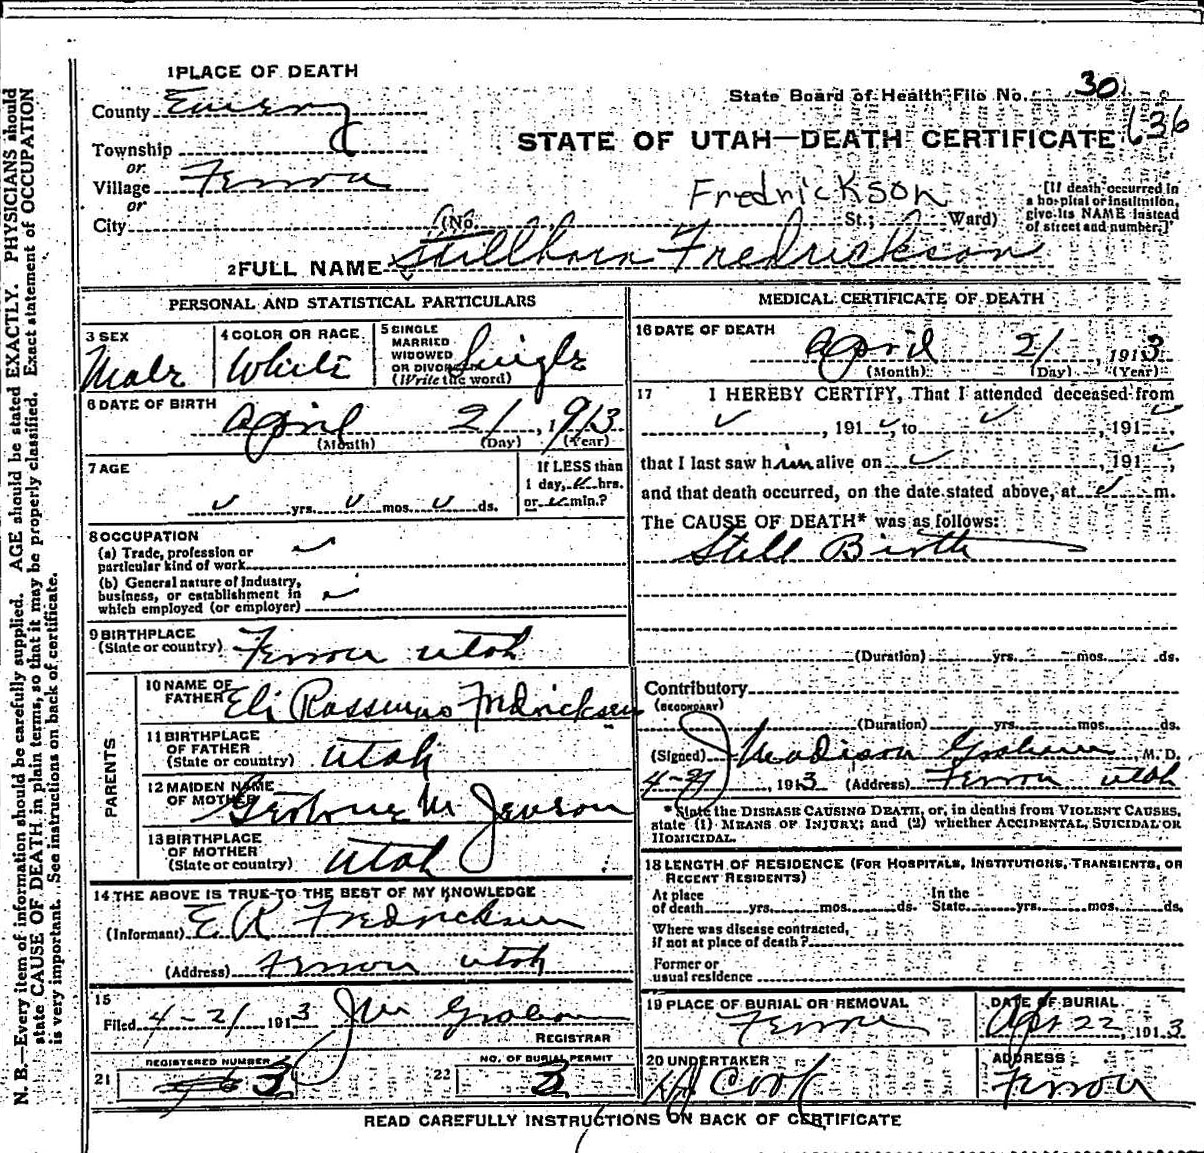 1 PLACE OF DEATH
County Emery
State Board of Health File No. 30
636
STATE OF UTAH—DEATH CERTIFICATE
Township
or
Village Ferron
or
City (No. St.; Ward)
Fredrickson
[If death occurred in
a hospital or institution,
give its NAME instead
of street and number.]
2 FULL NAME Stillborn Fredrickson
PERSONAL AND STATISTICAL PARTICULARS
3 SEX
Male
4 COLOR OR RACE
White
5 SINGLE
MARRIED
WIDOWED
OR DIVORCED
(Write the word)
Single
6 DATE OF BIRTH
April 21, 1913
(Month) (Day) (Year)
7 AGE
yrs. mos. ds.
If LESS than
1 day, hrs.
or min.?
8 OCCUPATION
(a) Trade, profession or
particular kind of work
(b) General nature of Industry,
business, or establishment in
which employed (or employer)
9 BIRTHPLACE
(State or country) Ferron Utah
PARENTS
10 NAME OF
FATHER Eli Rassmus Fredricksen
11 BIRTHPLACE
OF FATHER
(State or country) Utah
12 MAIDEN NAME
OF MOTHER M Jenson
13 BIRTHPLACE
OF MOTHER
(State or country) Utah
14 THE ABOVE IS TRUE TO THE BEST OF MY KNOWLEDGE
(Informant) E R Fredricksen
(Address) Ferron Utah
15
Filed 4-21 1913 Graham
REGISTRAR
21 REGISTERED NUMBER 3
22 NO. OF BURIAL PERMIT 3
MEDICAL CERTIFICATE OF DEATH
16 DATE OF DEATH
April 21, 1913
(Month) (Day) (Year)
17 I HEREBY CERTIFY, That I attended deceased from
, 191 , to , 191 ,
that I last saw him alive on , 191 ,
and that death occurred, on the date stated above, at m.
The CAUSE OF DEATH* was as follows:
Still Birth
(Duration) yrs. mos. ds.
Contributory
(SECONDARY)
(Duration) yrs. mos. ds.
(Signed) J Madison Graham M. D.
4-21, 1913 (Address) Ferron Utah
*State the DISEASE CAUSING DEATH, or, in deaths from VIOLENT CAUSES,
state (1) MEANS OF INJURY; and (2) whether ACCIDENTAL, SUICIDAL OR
HOMICIDAL.
18 LENGTH OF RESIDENCE (FOR HOSPITALS, INSTITUTIONS, TRANSIENTS, OR
RECENT RESIDENTS)
At place
of death yrs. mos. ds.
In the
State yrs. mos. ds.
Where was disease contracted,
if not at place of death?
Former or
usual residence
19 PLACE OF BURIAL OR REMOVAL
Ferron
DATE OF BURIAL
Apr 22, 1913
20 UNDERTAKER
Cook
ADDRESS
Ferron
READ CAREFULLY INSTRUCTIONS ON BACK OF CERTIFICATE
N. B.—Every item of information should be carefully supplied. AGE should be stated EXACTLY. PHYSICIANS should
state CAUSE OF DEATH in plain terms, so that it may be properly classified. Exact statement of OCCUPATION
is very important. See instructions on back of certificate.